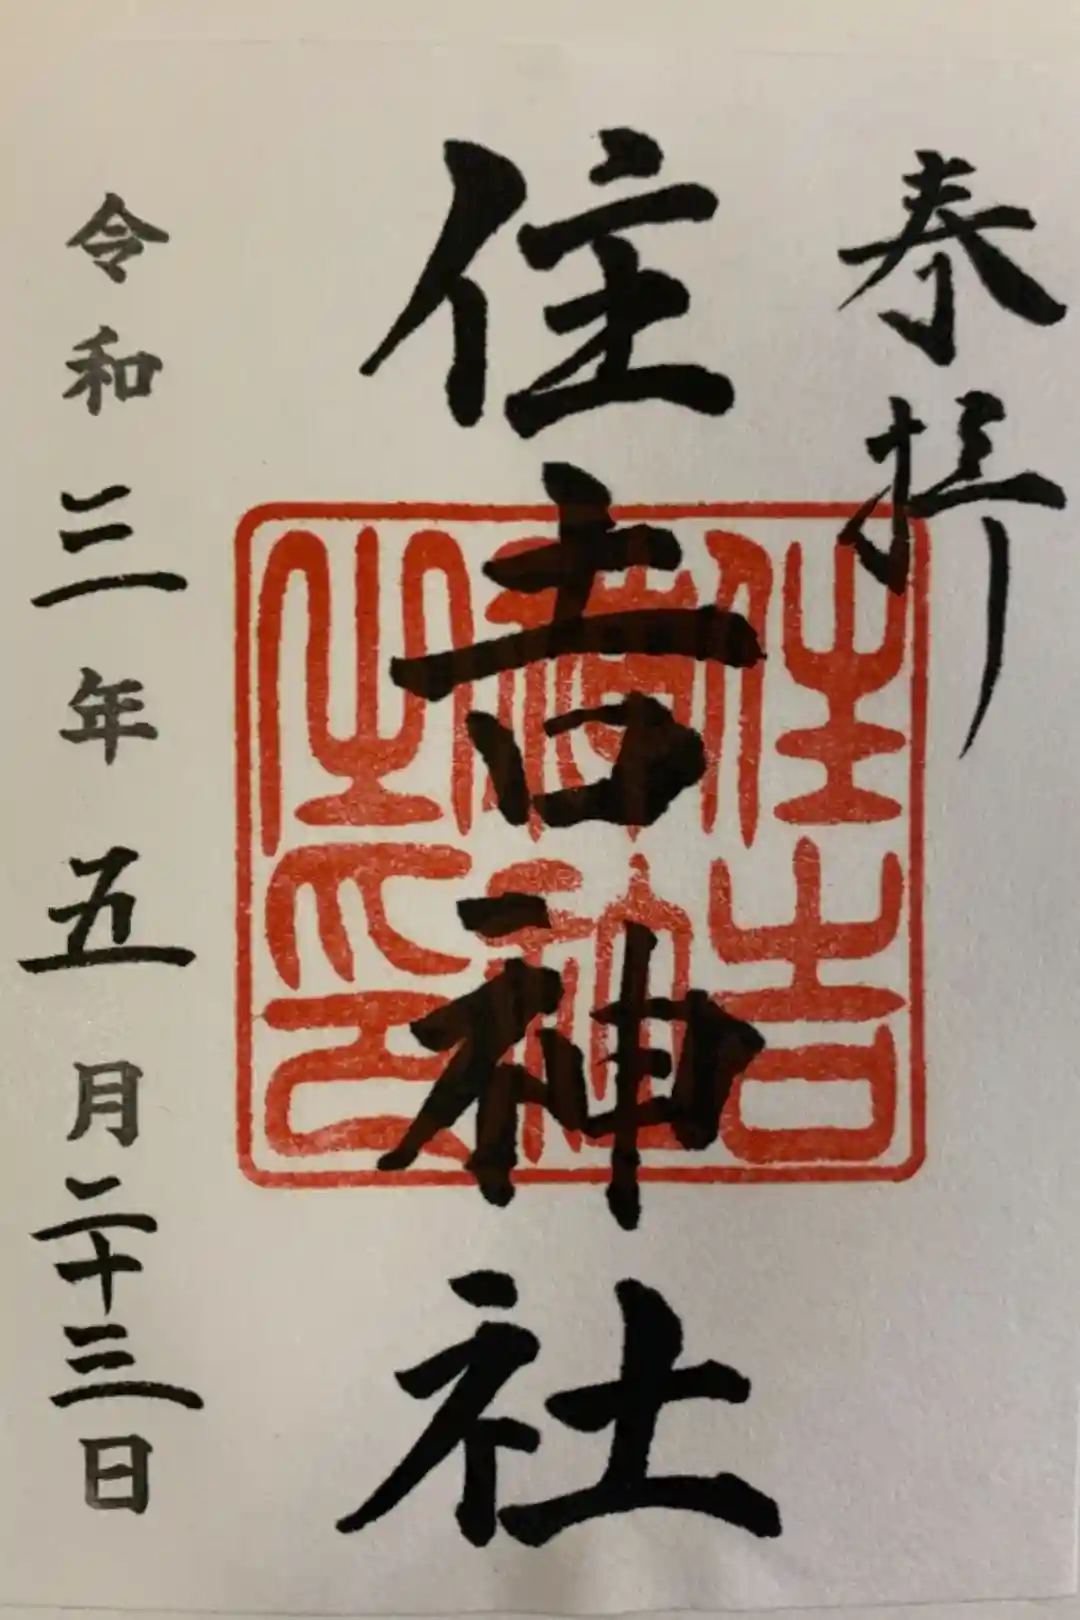 奉拝
住吉神社
住吉
神社
之印
令和三年五月二十三日